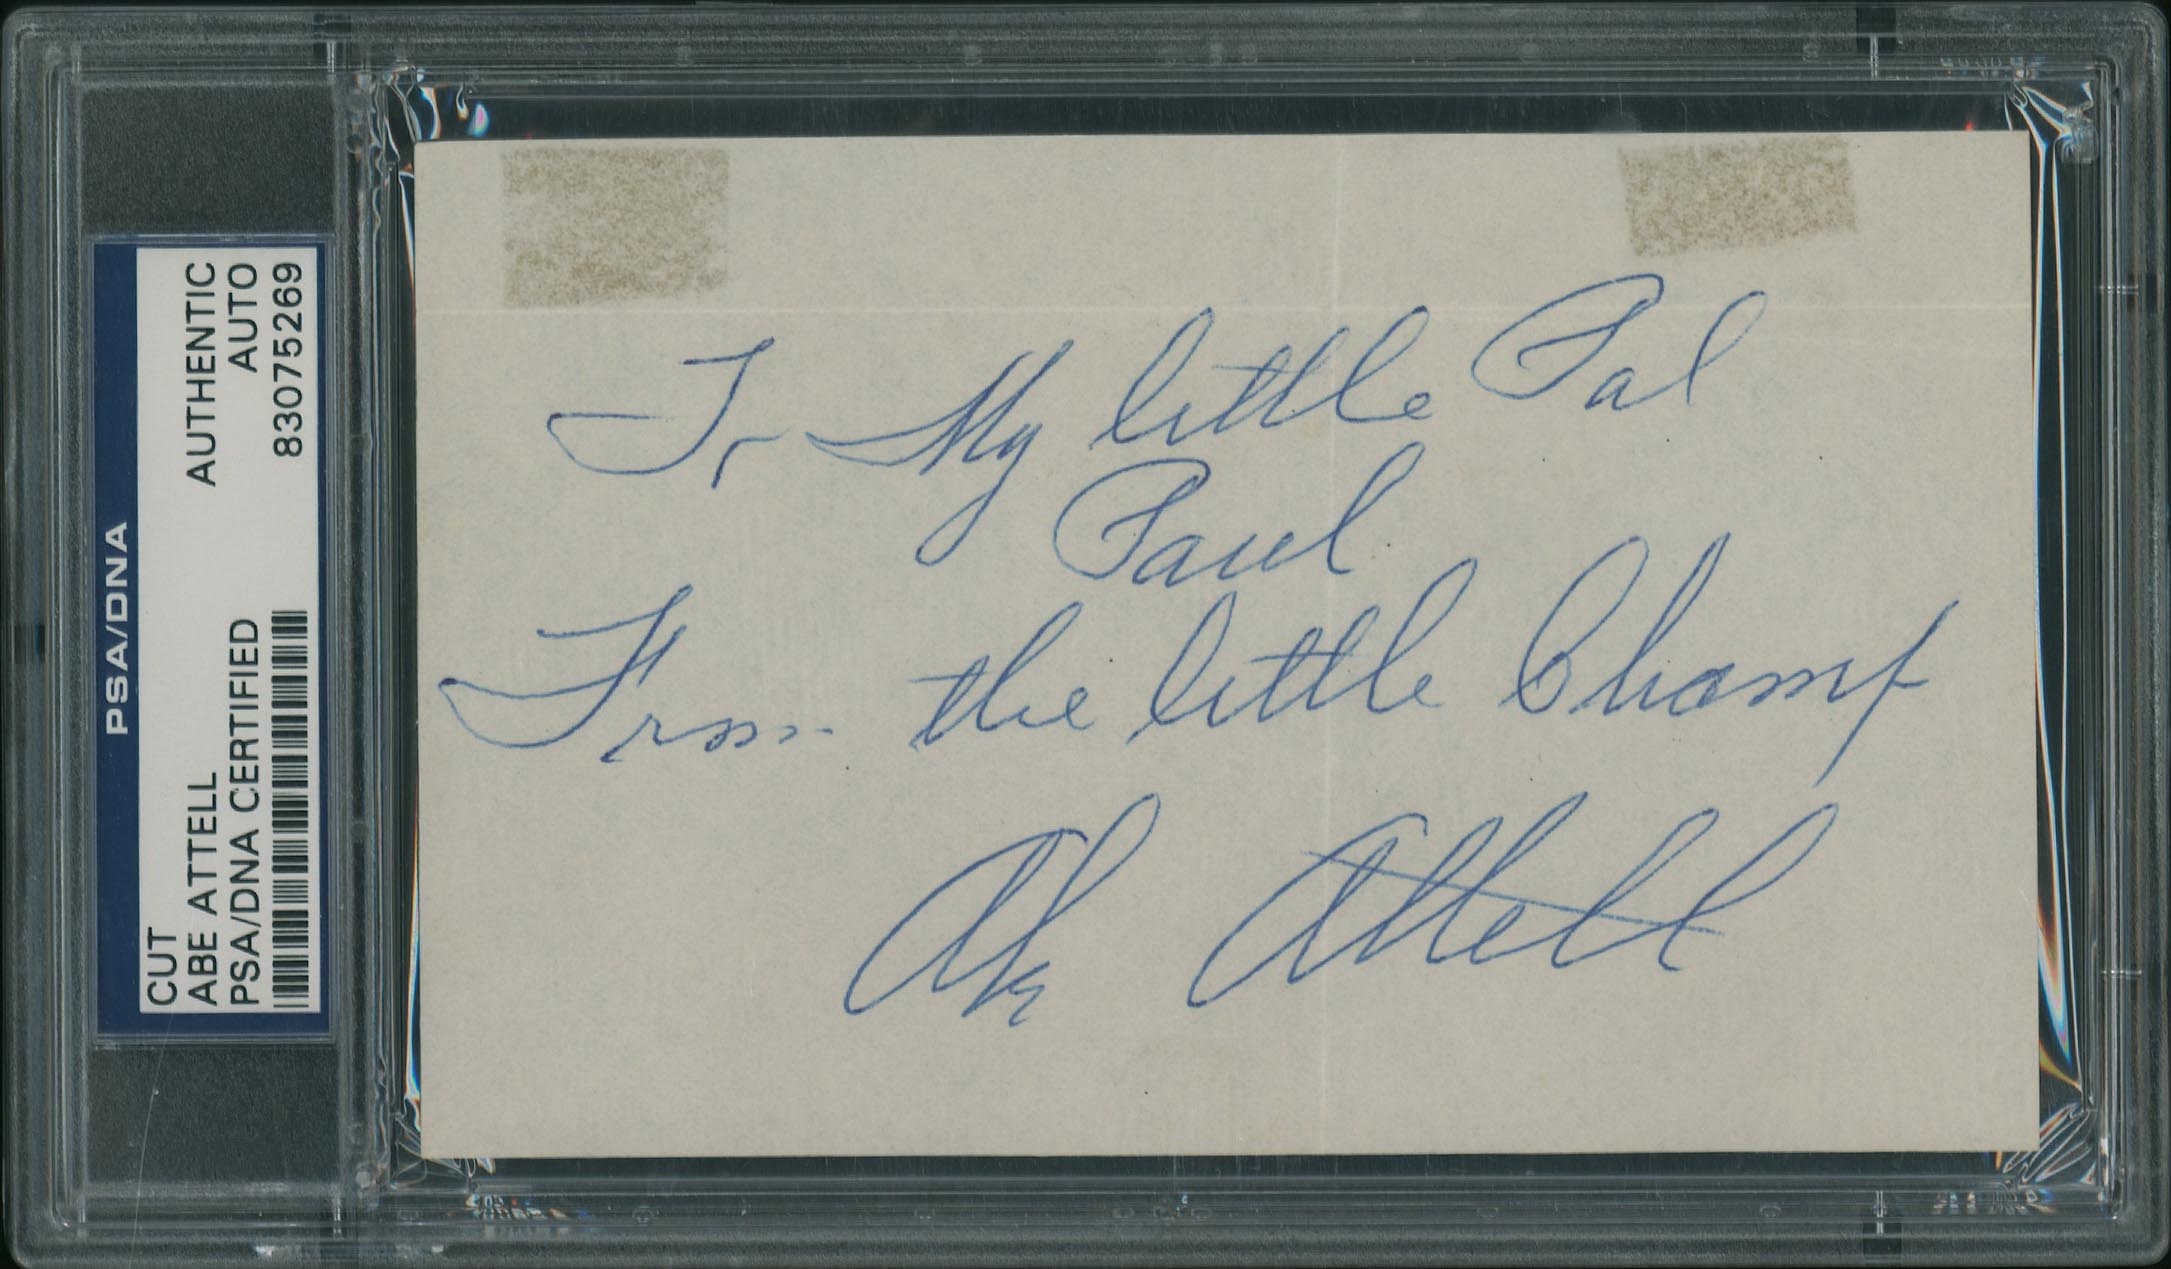 PSA/DNA
CUT
ABE ATTELL
PSA/DNA CERTIFIED
AUTHENTIC
AUTO
83075269
To My little Pal
Paul
From the little Champ
Abe Attell